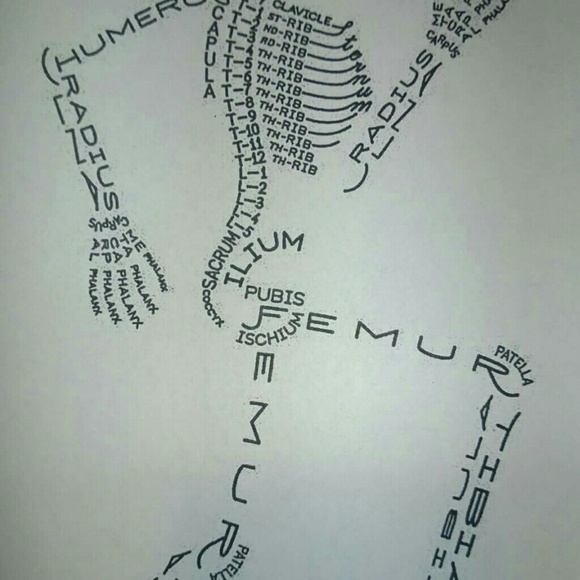 HUMERU
SCAPULA
CLAVICLE
ST-RIB
ND-RIB
RD-RIB
TH-RIB
TH-RIB
TH-RIB
TH-RIB
TH-RIB
TH-RIB
TH-RIB
TH-RIB
TH-RIB
Sternum
T-2
T-3
T-4
T-5
T-6
T-7
T-8
T-9
T-10
T-11
T-12
L-1
L-2
L-3
L-4
L-5
SACRUM
COCCYX
ILIUM
PUBIS
ISCHIUM
RADIUS
ULNA
CARPUS
META
CARPAL
PHALANX
PHALANX
PHALANX
PHALANX
PHALANX
RADIUS
ULNA
CARPUS
FEMUR
PATELLA
TIBIA
FIBULA
FEMUR
PATELLA